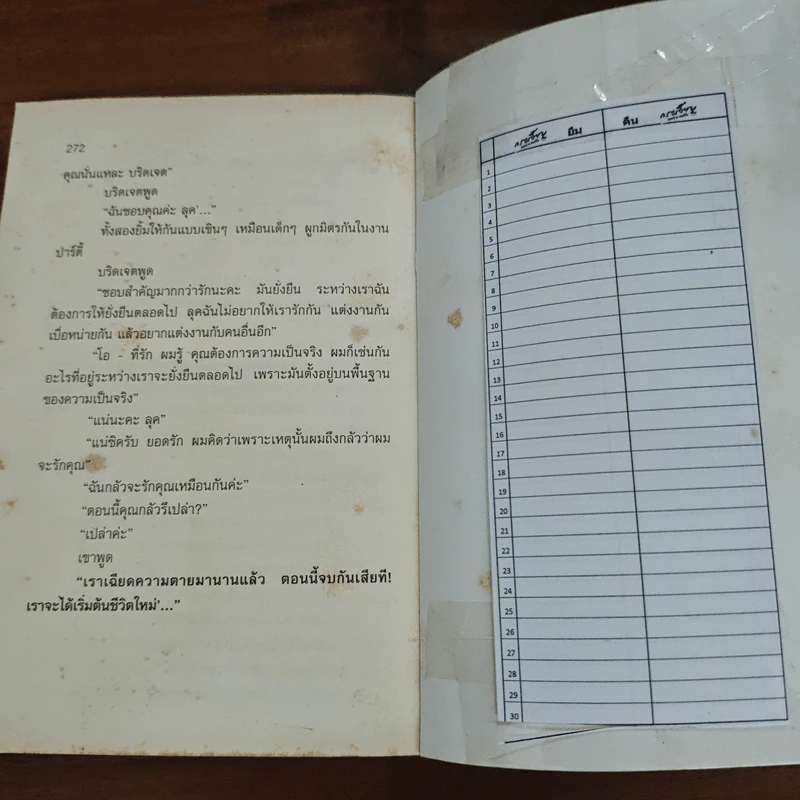 272
คุณนั่นแหละ บริดเจต”
บริดเจตพูด
“ฉันชอบคุณค่ะ ลุค’...”
ทั้งสองยิ้มให้กันแบบเขินๆ เหมือนเด็กๆ ผูกมิตรกันในงาน
ปาร์ตี้
บริดเจตพูด
“ชอบสำคัญมากกว่ารักนะคะ มันยั่งยืน ระหว่างเราฉัน
ต้องการให้ยั่งยืนตลอดไป ลุคฉันไม่อยากให้เรารักกัน แต่งงานกัน
เบื่อหน่ายกัน แล้วอยากแต่งงานกับคนอื่นอีก”
“โอ - ที่รัก ผมรู้ คุณต้องการความเป็นจริง ผมก็เช่นกัน
อะไรที่อยู่ระหว่างเราจะยั่งยืนตลอดไป เพราะมันตั้งอยู่บนพื้นฐาน
ของความเป็นจริง”
“แน่นะคะ ลุค”
“แน่ซิครับ ยอดรัก ผมคิดว่าเพราะเหตุนั้นผมถึงกลัวว่าผม
จะรักคุณ”
“ฉันกลัวจะรักคุณเหมือนกันค่ะ”
“ตอนนี้คุณกลัวรึเปล่า?”
“เปล่าค่ะ”
เขาพูด
“เราเฉียดความตายมานานแล้ว ตอนนี้จบกันเสียที!
เราจะได้เริ่มต้นชีวิตใหม่’...”
ยืม คืน
1
2
3
4
5
6
7
8
9
10
11
12
13
14
15
16
17
18
19
20
21
22
23
24
25
26
27
28
29
30